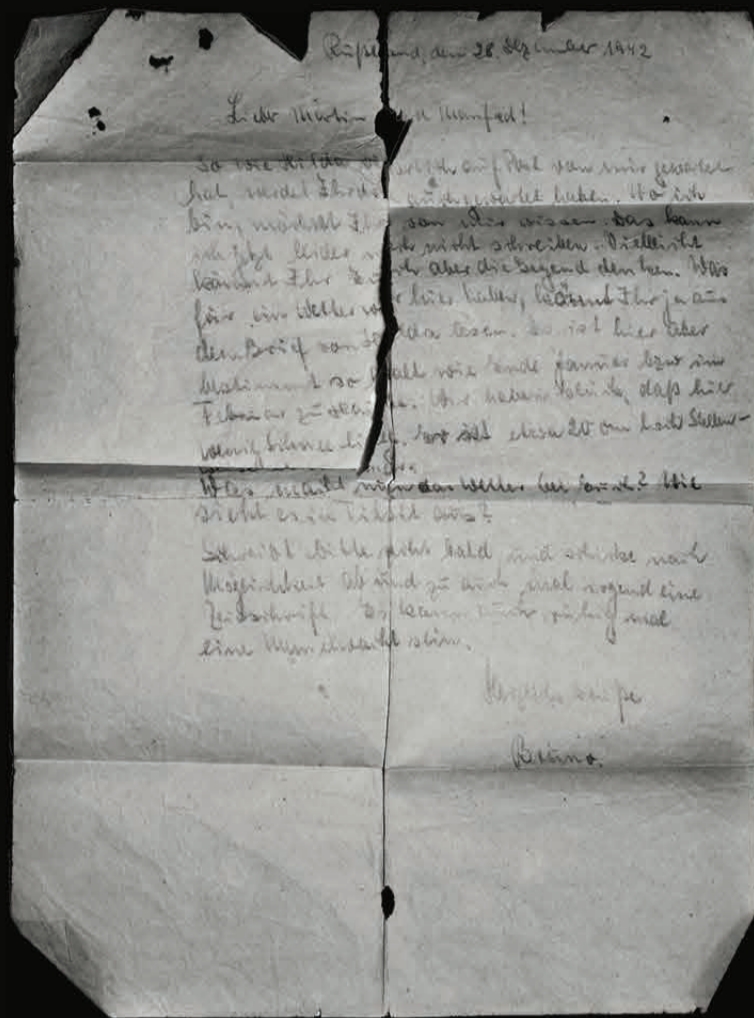 Rußland, den 28. Dezember 1942
Lieber Martin Manfred!
So wie Hilda auf Post von mir gewartet
hat, werdet Ihr auch gewartet haben. Wo ich
bin, möchtet Ihr von mir wissen. Das kann
ich jetzt leider nicht schreiben. Vielleicht
könnt Ihr Euch aber die Gegend denken. Was
für ein Wetter wir hier haben, könnt Ihr ja aus
dem Brief von Hilda lesen. Es ist hier aber
bestimmt so kalt wie Ende Januar bzw im
Februar zu Hause. Wir haben Glück, daß hier
wenig Schnee liegt. Er ist etwa 20 cm hoch
Was macht nun das Wetter bei Euch? Wie
sieht es in aus?
Schreibt bitte recht bald und schickt nach
Möglichkeit ab und zu auch mal irgend eine
Zeitschrift. Es kann ruhig mal
eine sein.
Herzliche Grüße
Bruno.